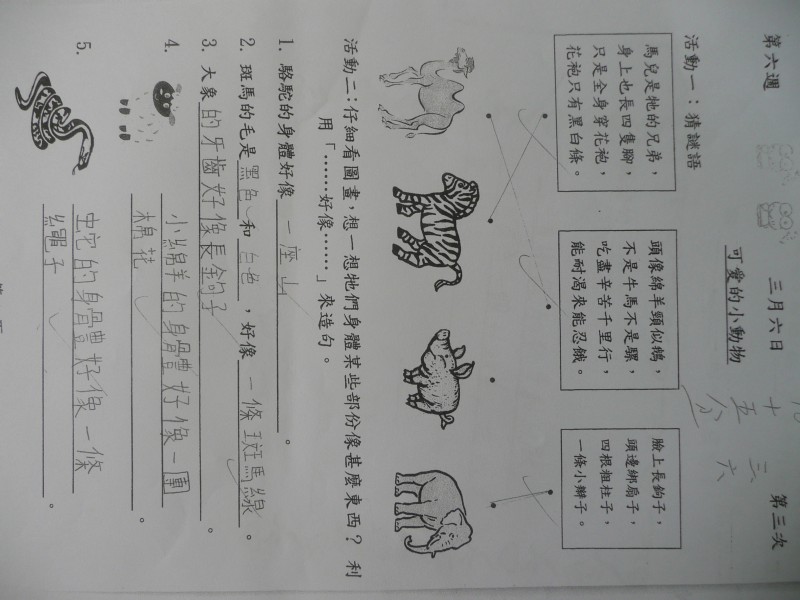 第六週 三月六日 第三次
可愛的小動物
十五分
活動一：猜謎語
馬兒是牠的兄弟，
身上也長四隻腳，
只是全身穿花袍，
花袍只有黑白條。
頭像綿羊頸似鵝，
不是牛馬不是騾，
吃盡辛苦千里行，
能耐渴來能忍餓。
臉上長鉤子，
頭邊綁扇子，
四根粗柱子，
一條小辮子。
活動二：仔細看圖畫，想一想牠們身體某些部份像甚麼東西？利
用「……好像……」來造句。
1. 駱駝的身體好像一座山。
2. 斑馬的毛是黑色和白色，好像一條斑馬線。
3. 大象的牙齒好像長鉤子。
4. 小綿羊的身體好像一團
棉花。
5. 蛇的身體好像一條
繩子。